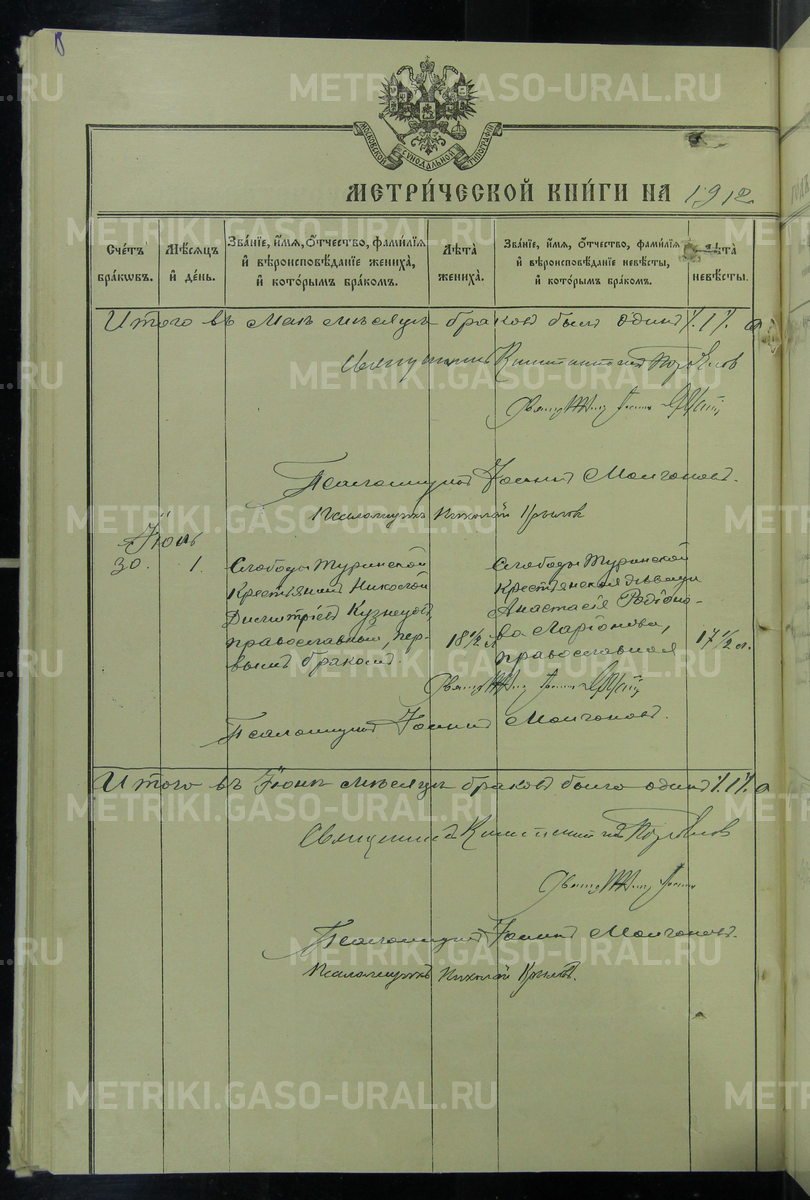 МОСКОВСКОЙ СѴНОДАЛЬНОЙ ТИПОГРАФІИ
МЕТРИЧЕСКОЙ КНИГИ НА 1912
Счетъ браковъ.
Мѣсяцъ и день.
Званіе, имя, отчество, фамилія и вѣроисповѣданіе жениха, и которымъ бракомъ.
Лѣта жениха.
Званіе, имя, отчество, фамилія и вѣроисповѣданіе невѣсты, и которымъ бракомъ.
Лѣта невѣсты.
Итого въ Маѣ мѣсяцѣ браковъ былъ одинъ /.1/.
Священникъ Константинъ
Псаломщикъ Іоаннъ Молчановъ.
Псаломщикъ Николай Крыловъ
Іюнь
30. 1.
Слободы Туринской
Крестьянинъ Николай
Димитріевъ Кузнецовъ,
православный, пер-
вымъ бракомъ.
18 1/2 л.
Слободы Туринской
Крестьянская дѣвица
Анастасія Родіоно-
ва Ларіонова,
православная
17 1/2 л.
Псаломщикъ Іоаннъ Молчановъ.
Итого въ Іюнѣ мѣсяцѣ браковъ было одинъ /.1/.
Священникъ Константинъ
Псаломщикъ Іоаннъ Молчановъ.
Псаломщикъ Николай Крыловъ.
METRIKI.GASO-URAL.RU